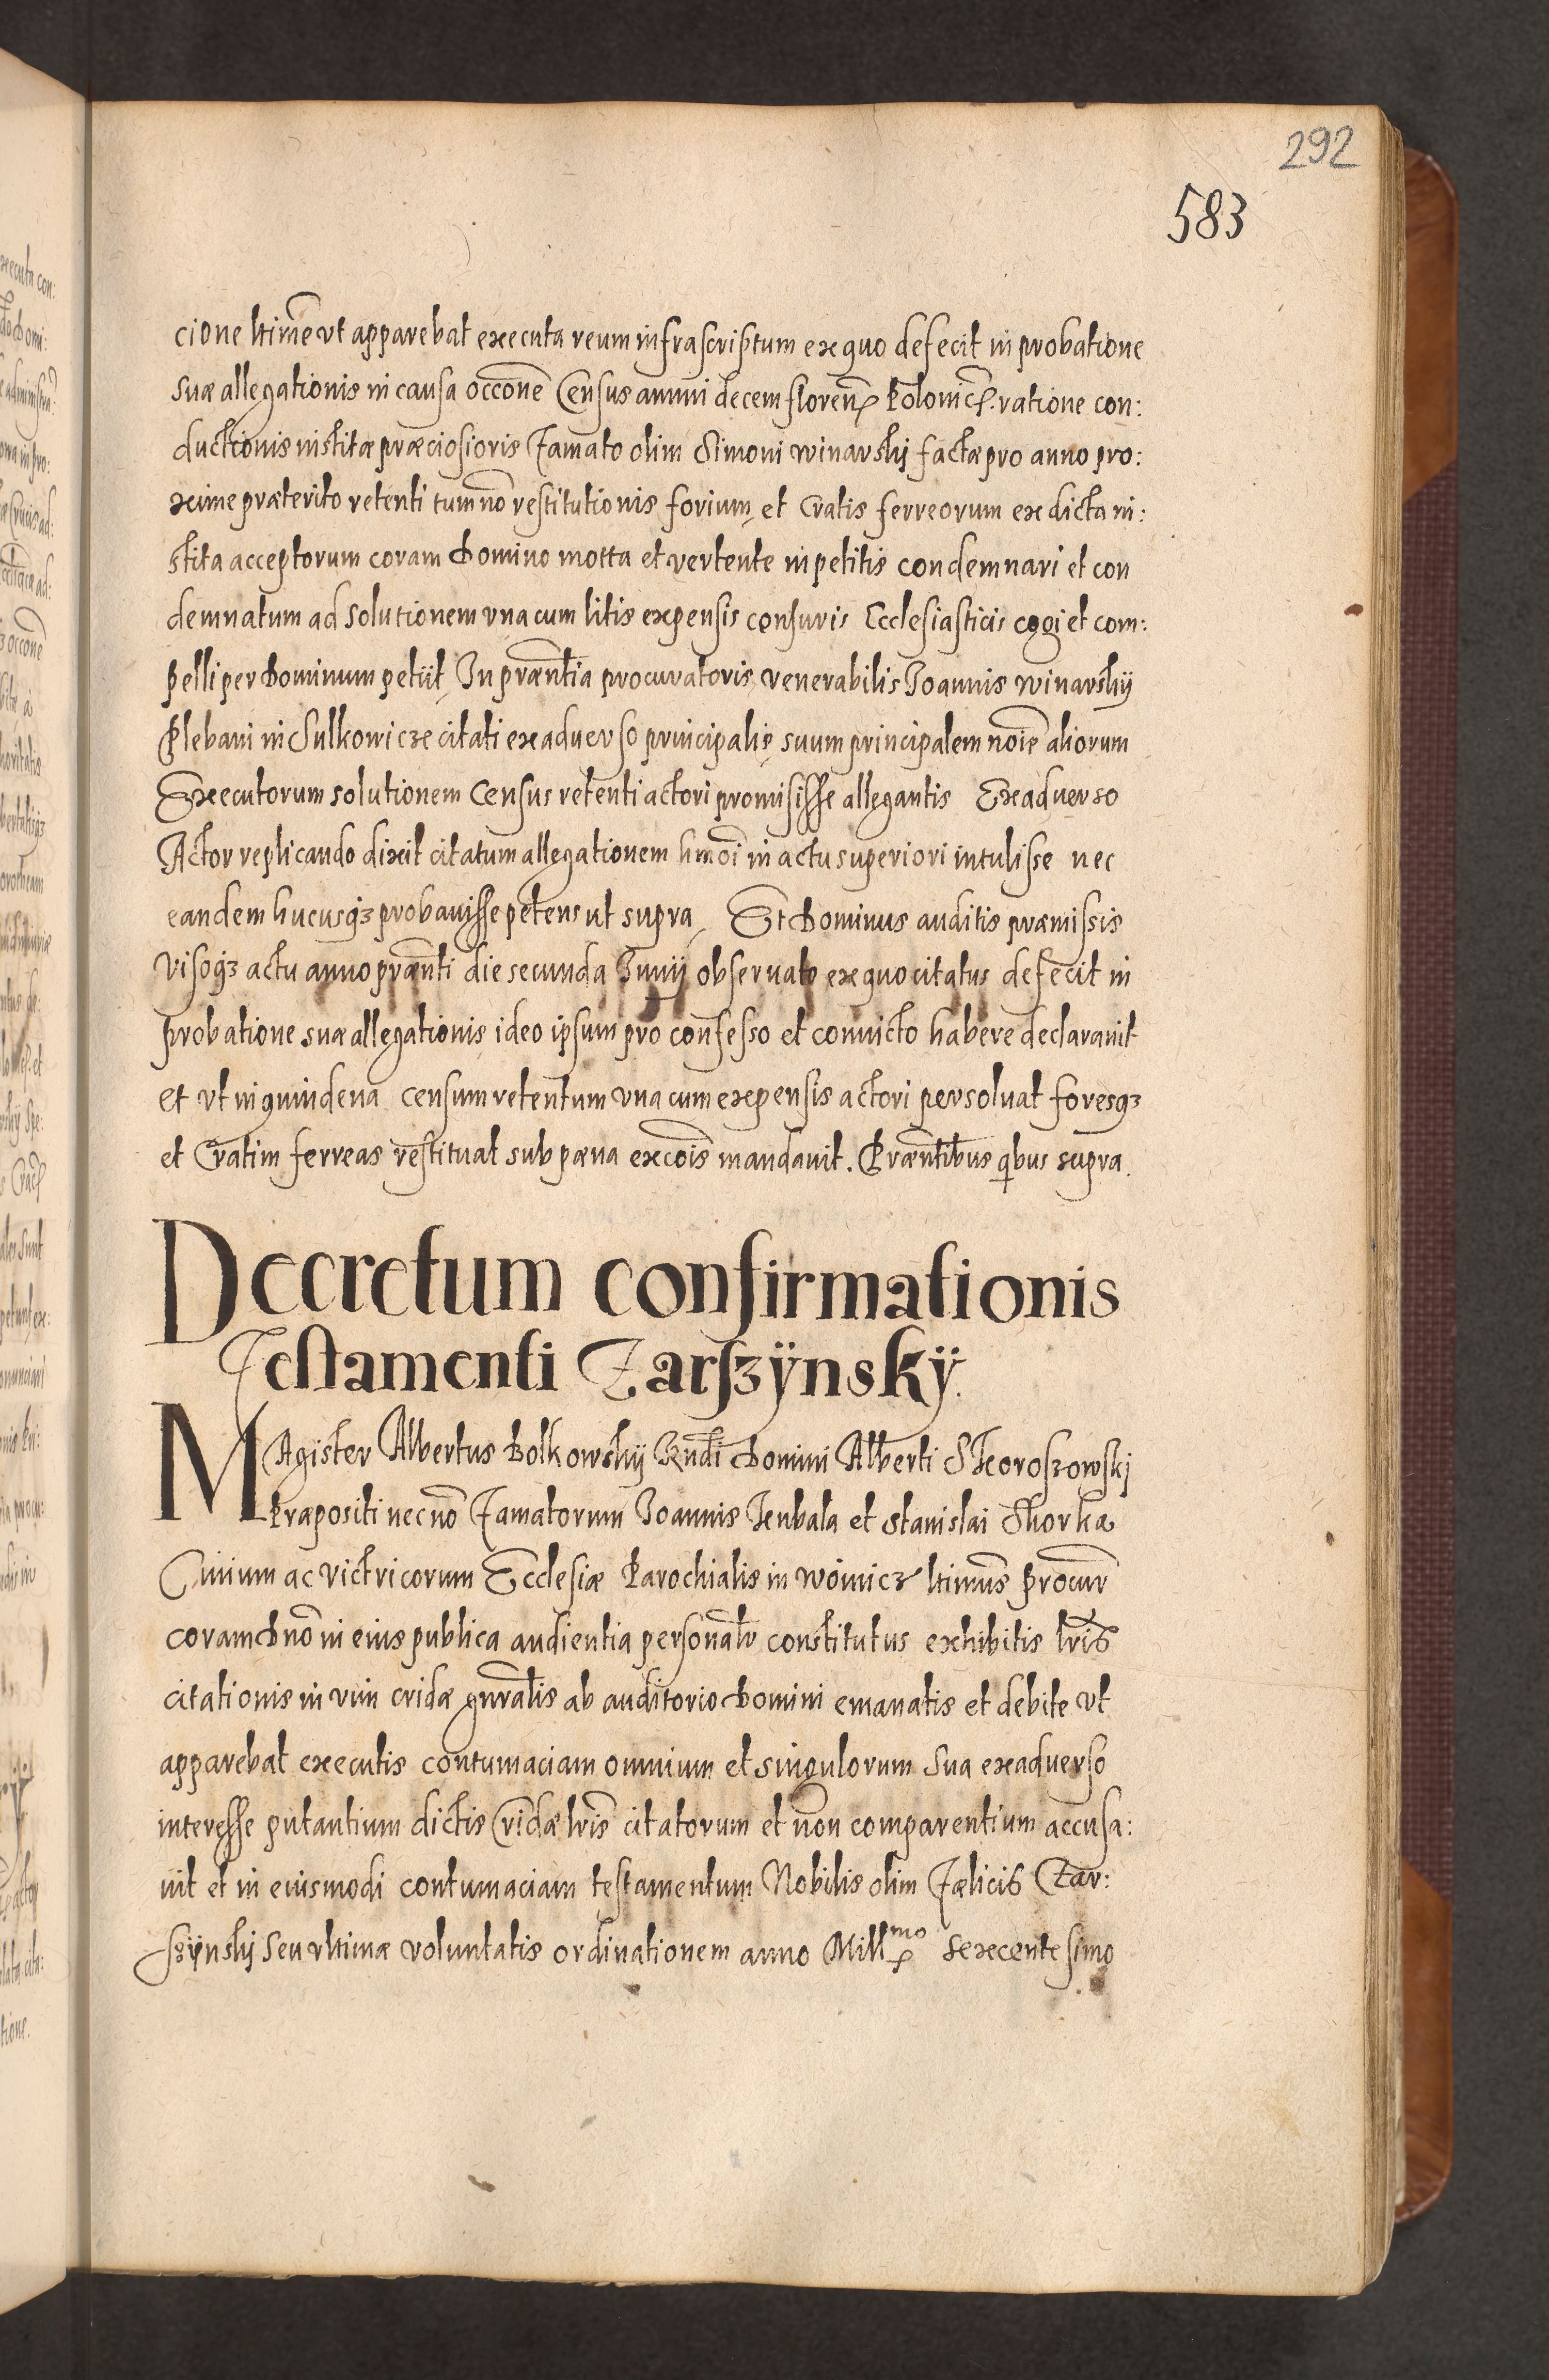 292
583
cione ltime vt apparebat executa reum infrascriptum ex quo defecit in probatione
suæ allegationis in causa occone Census annui decem floren. Polonic. ratione con:
ductionis institæ præciosioris Famato olim Simoni winarskij factæ pro anno pro:
xime præterito retenti tum no restitutionis forium et Cratis ferreorum ex dicta in:
stita acceptorum coram Domino motta et vertente in petitis condemnari et con
demnatum ad solutionem vna cum litis expensis censuris Ecclesiasticis cogi et com:
pelli per Dominum petiit, In præntia procuratoris venerabilis Joannis winarskij
Plebani in Sulkowicze citati ex aduerso principalis suum principalem noie aliorum
Executorum solutionem Census retenti actori promisisse allegantis Ex aduerso
Actor replicando dixit citatum allegationem hmoi in actu superiori intulisse nec
eandem hucusqz probauisse petens ut supra, Et Dominus auditis præmissis
visoqz actu anno prænti die secunda Junij obseruato ex quo citatus defecit in
probatione suæ allegationis ideo ipsum pro confesso et conuicto habere declarauit
et vt in quindena censum retentum vna cum expensis actori persoluat foresqz
et Cratim ferreas restituat sub pæna excois mandauit. Præntibus qbus supra.
Decretum confirmationis
Testamenti Tarszÿnskÿ.
MAgister Albertus Bolkowskij Rndi Domini Alberti Skoroszowskj
Præpositi nec no Famatorum Joannis Kubala et Stanislai Skorka
Ciuium ac victricorum Ecclesiæ Parochialis in woinicz ltimus procur
coram Dno in eius publica audientia personalr constitutus exhibitis lris
citationis in vim cridæ gnralis ab auditorio Domini emanatis et debite vt
apparebat executis contumaciam omnium et singulorum sua ex aduerso
interesse putantium dictis Cridæ lris citatorum et non comparentium accusa:
uit et in eiusmodi contumaciam testamentum Nobilis olim Fælicis Tar:
szÿnskij seu vltimæ voluntatis ordinationem anno Mill.mo sexcentesimo